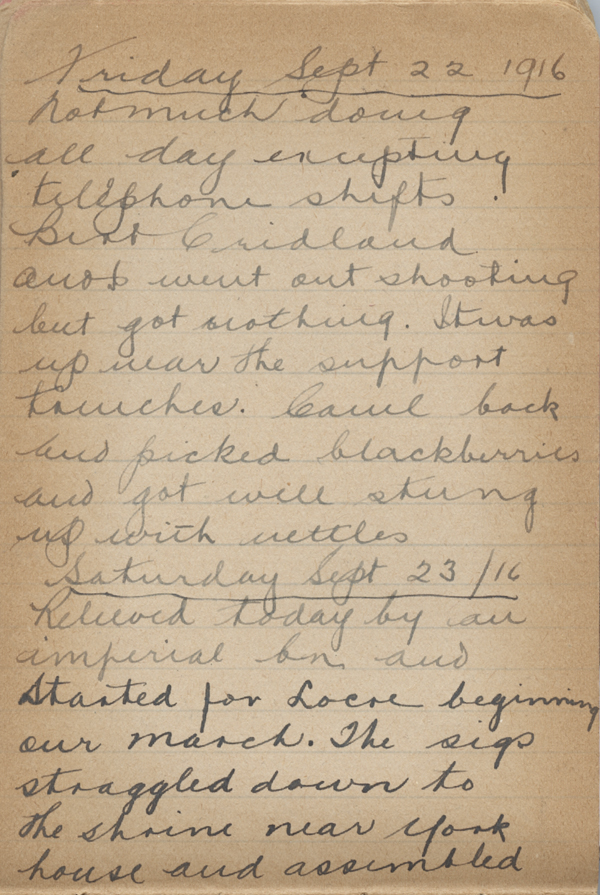 Friday Sept 22 1916
Not much doing
all day excepting
telephone shifts.
Bert Cridland
and I went out shooting
but got nothing. It was
up near the support
trenches. Came back
and picked blackberries
and got well stung
up with nettles
Saturday Sept 23/16
Relieved today by an
imperial bn and
Started for Locre beginning
our march. The sigs
straggled down to
the shrine near York
house and assembled